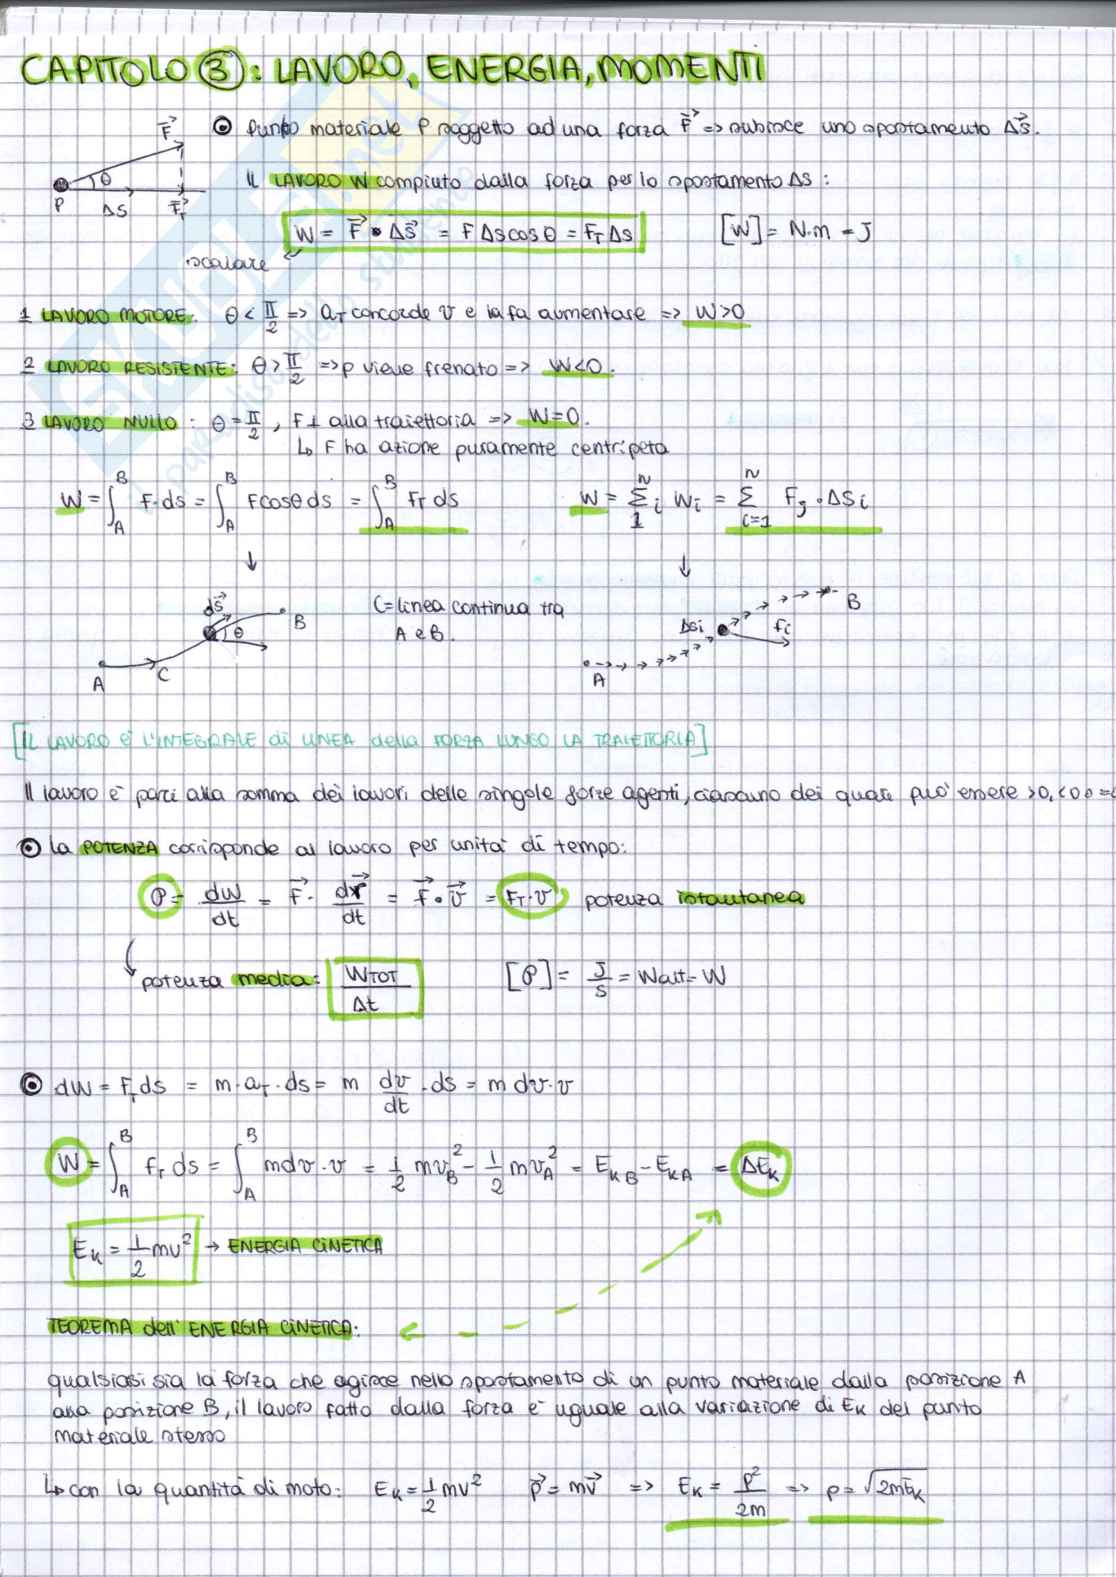 CAPITOLO 3: LAVORO, ENERGIA, MOMENTI
F⃗
θ
P
ΔS
F⃗T
⊙ punto materiale P soggetto ad una forza F⃗ => subisce uno spostamento Δs⃗.
Il LAVORO W compiuto dalla forza per lo spostamento ΔS:
W = F⃗ • Δs⃗ = F Δs cos θ = FT Δs
[W] = N·m = J
scalare
1 LAVORO MOTORE: θ < π/2 => aT concorde v e la fa aumentare => W>0
2 LAVORO RESISTENTE: θ > π/2 => p viene frenato => W<0.
3 LAVORO NULLO: θ = π/2, F⊥ alla traiettoria => W=0.
↳ F ha azione puramente centripeta
W = ∫_A^B F·ds = ∫_A^B Fcosθ ds = ∫_A^B FT ds
W = Σ_1^N i Wi = Σ_{i=1}^N Fj · ΔSi
↓
↓
ds⃗
θ
B
A
C
C=linea continua tra
A e B.
B
ΔSi
fi
A
[IL LAVORO E' L'INTEGRALE di LINEA della FORZA LUNGO LA TRAIETTORIA]
Il lavoro e' pari alla somma dei lavori delle singole forze agenti, ciascuno dei quali puo' essere >0, <0 o =0
⊙ la POTENZA corrisponde al lavoro per unita' di tempo:
P = dW/dt = F⃗ · dr⃗/dt = F⃗ • v⃗ = FT·v potenza istantanea
potenza media: WTOT/Δt
[P] = J/s = Watt = W
⊙ dW = FT ds = m·aT·ds = m dv/dt · ds = m dv·v
W = ∫_A^B fT ds = ∫_A^B mdv·v = 1/2 mvB² - 1/2 mvA² = EKB - EKA = ΔEK
EK = 1/2 mv² → ENERGIA CINETICA
TEOREMA dell' ENERGIA CINETICA:
qualsiasi sia la forza che agisce nello spostamento di un punto materiale dalla posizione A
alla posizione B, il lavoro fatto dalla forza e' uguale alla variazione di EK del punto
materiale stesso
↳ con la quantità di moto: EK = 1/2 mv² p⃗ = mv⃗ => EK = p²/2m => p = √2mEK